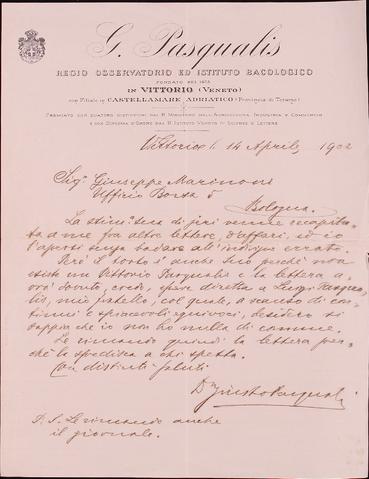 G. Pasqualis
REGIO OSSERVATORIO ED ISTITUTO BACOLOGICO
FONDATO NEL 1872
IN VITTORIO (VENETO)
con Filiale in CASTELLAMARE ADRIATICO (Provincia di Teramo)
PREMIATO CON QUATTRO DISTINZIONI DAL R. MINISTERO DELL'AGRICOLTURA, INDUSTRIA E COMMERCIO
E CON DIPLOMA D'ONORE DAL R. ISTITUTO VENETO DI SCIENZE E LETTERE
Vittorio, li 14 Aprile 1902
Sigr Giuseppe Marinoni
Ufficio Borsa 5
Bologna.
La stima sua di jeri venne recapita-
ta a me fra altre lettere d'affari, ed io
l'apersi senza badare all'indirizzo errato.
Però il torto è anche suo perchè non
esiste un Vittorio Pasqualis e la lettera a-
vrà dovuto, credo, essere diretta a Luigi Pasqua-
lis, mio fratello, col quale, a scanso di con-
tinui e spiacevoli equivoci, desidero si
sappia che io non ho nulla di comune.
Le rimando quindi la lettera per-
chè la spedisca a chi spetta.
Con distinti saluti
Dr Giusto Pasqualis
P. S. Le rimando anche
il giornale.